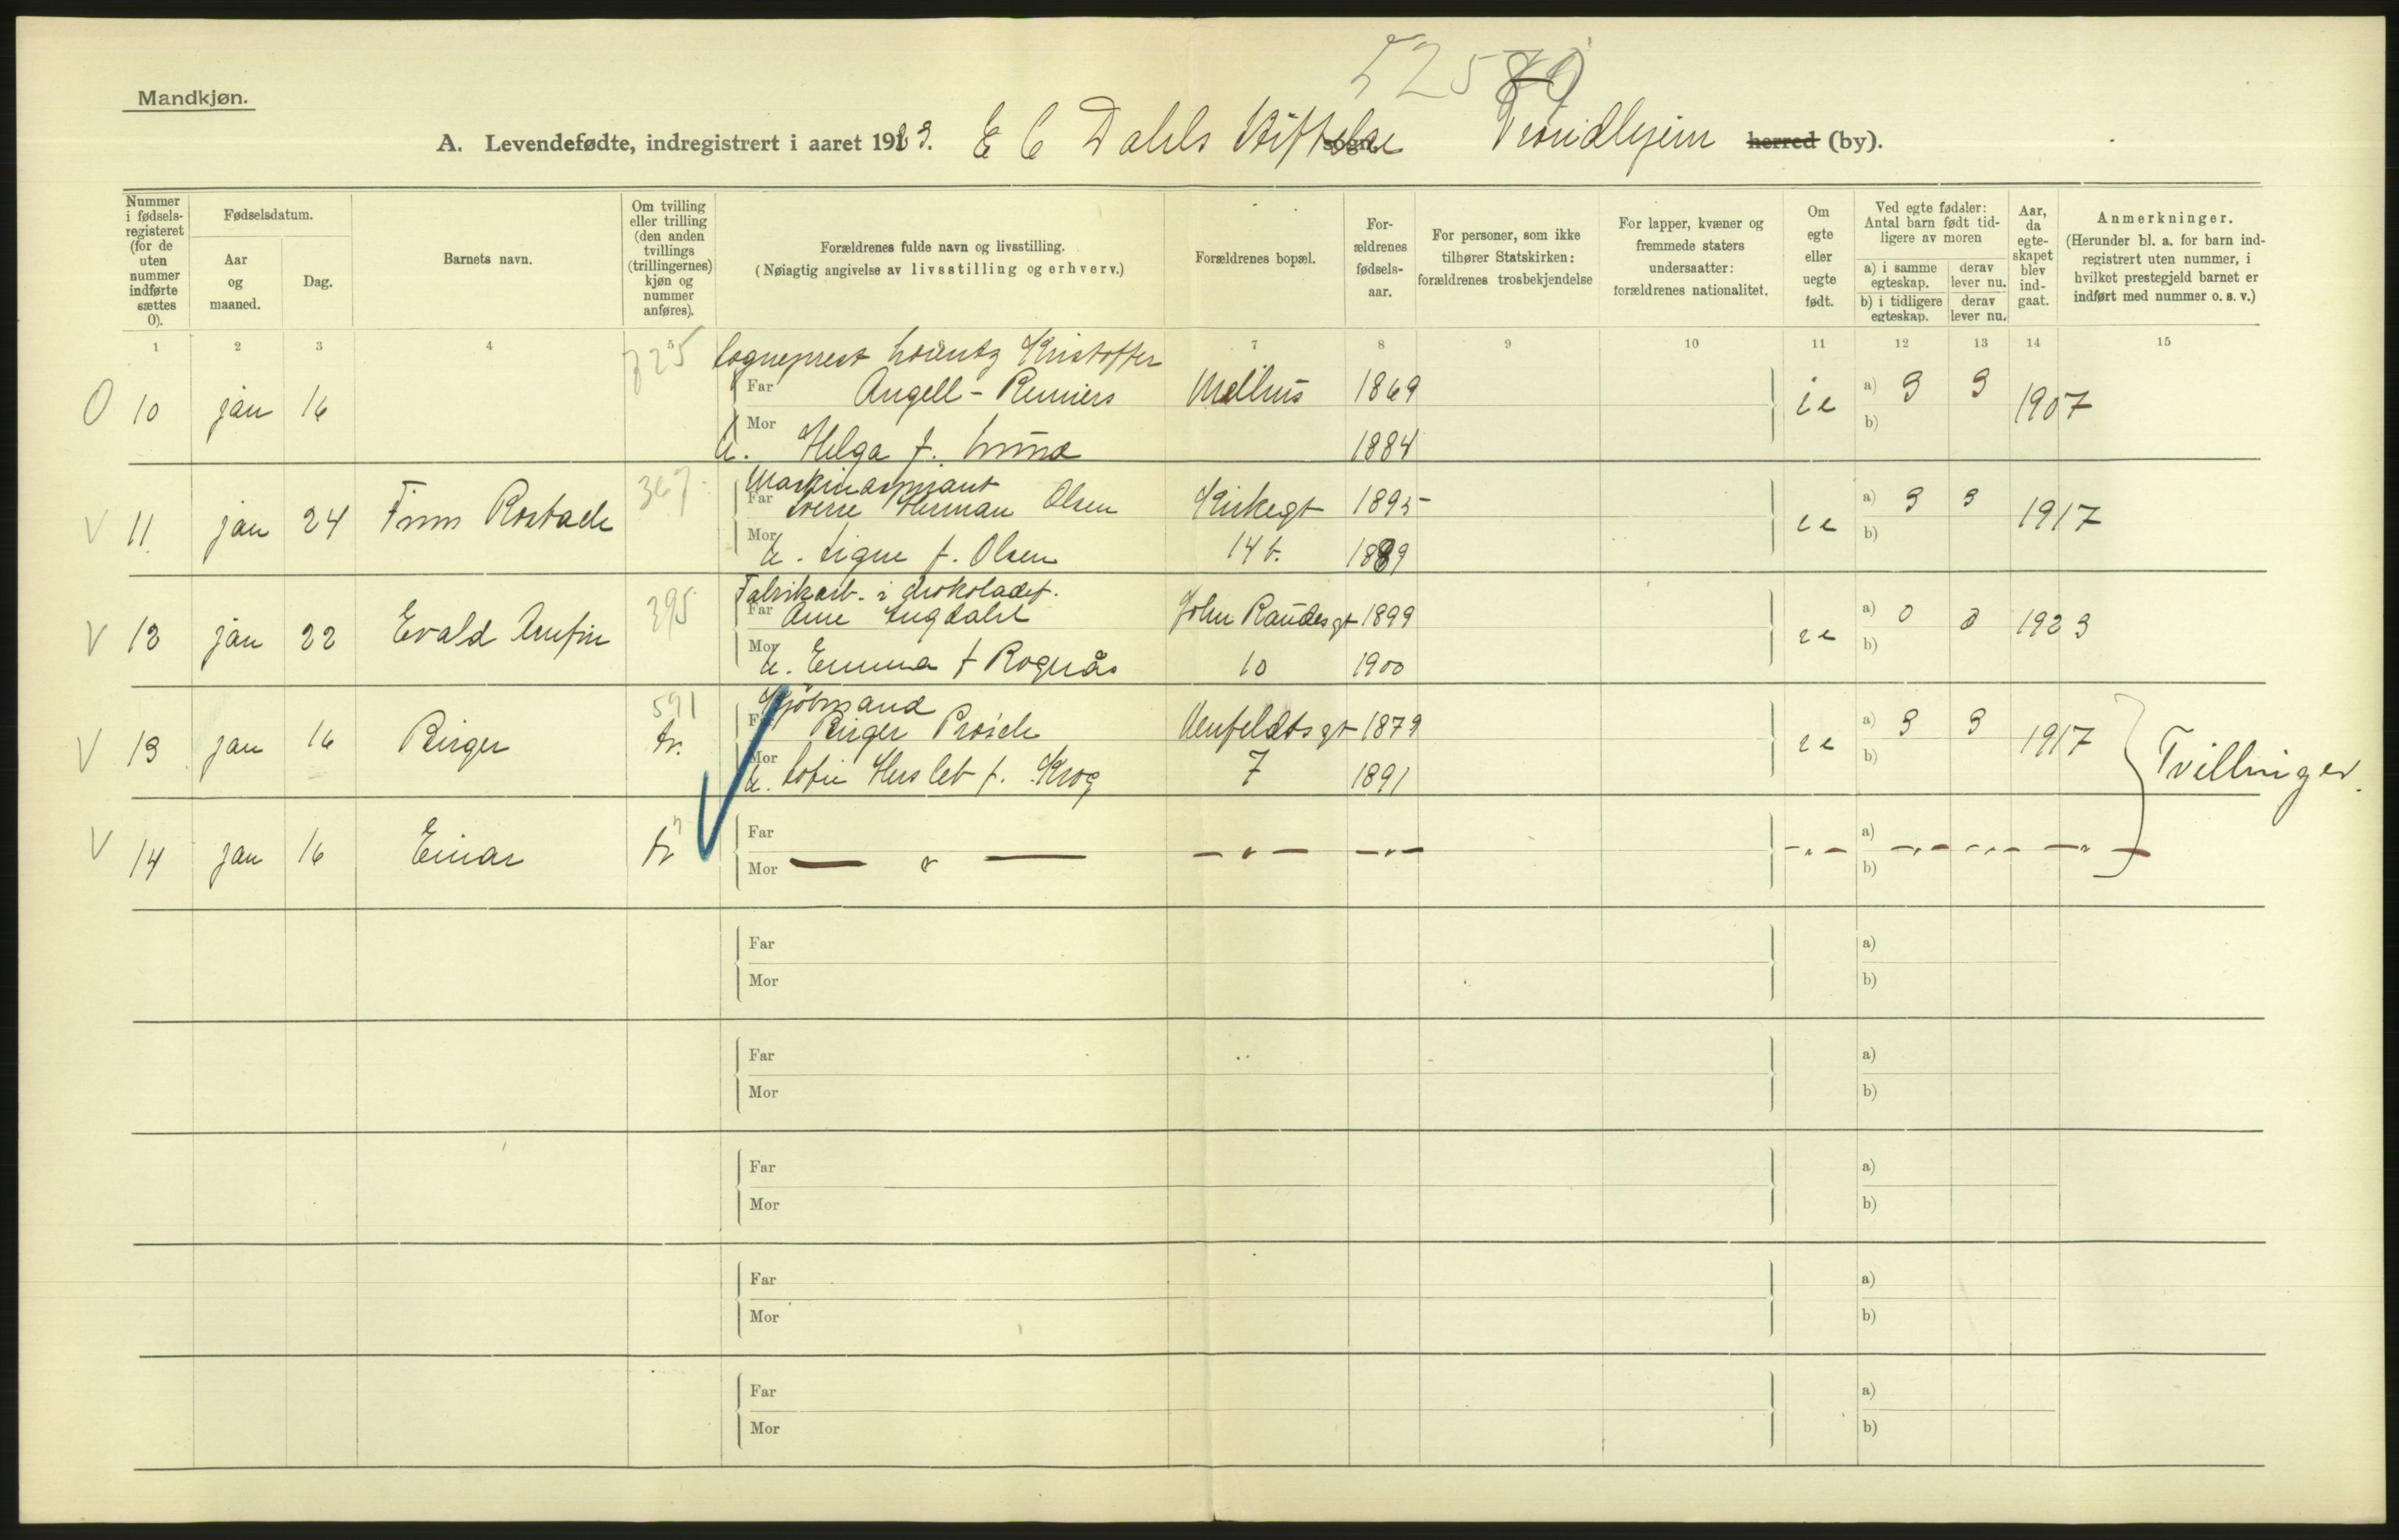 Mandkjøn.
A. Levendefødte, indregistrert i aaret 1923. E C Dahls Stiftelse sogn. Trondhjem herred (by).
Nummer i fødsels-registeret (for de uten nummer indførte sættes 0).
Fødselsdatum.
Aar og maaned.
Dag.
Barnets navn.
Om tvilling eller trilling (den anden tvillings (trillingernes) kjøn og nummer anføres).
Forældrenes fulde navn og livsstilling.
(Nøiagtig angivelse av livsstilling og erhverv.)
Forældrenes bopæl.
For-ældrenes fødsels-aar.
For personer, som ikke tilhører Statskirken: forældrenes trosbekjendelse
For lapper, kvæner og fremmede staters undersaatter: forældrenes nationalitet.
Om egte eller uegte født.
Ved egte fødsler: Antal barn født tid-ligere av moren
a) i samme egteskap. derav lever nu.
b) i tidligere egteskap. derav lever nu.
Aar, da egte-skapet blev ind-gaat.
Anmerkninger.
(Herunder bl. a. for barn ind-registrert uten nummer, i hvilket prestegjeld barnet er indført med nummer o. s. v.)
1 2 3 4 5 7 8 9 10 11 12 13 14 15
Sogneprest Lorentz Kristoffer
O 10 jan 16 Far Angell - Melhus 1869 ie a) 3 3 1907
Mor Helga f. 1884 b)
11 jan 24 Finn
Far Herman Olsen Kirkegt 1895 a) 3 3 1917
Mor Signe f. Olsen 14 b. 1889 b)
Fabrikarb. i
V 12 jan 22 Evald Arnfin 395 Far Arne Engdahl 1899 a) 0 0 1923
Mor Emma f Rognås 10 1900 b)
591
V 13 jan 16 Birger tv. Far Birger 1879 a) 3 3 1917
Mor Sofie Hersleb f. Krog 7 1891 b)
Tvillinger.
V 14 jan 16 Einar tv Far a)
Mor — " — b)
Far a)
Mor b)
Far a)
Mor b)
Far a)
Mor b)
Far a)
Mor b)
Far a)
Mor b)